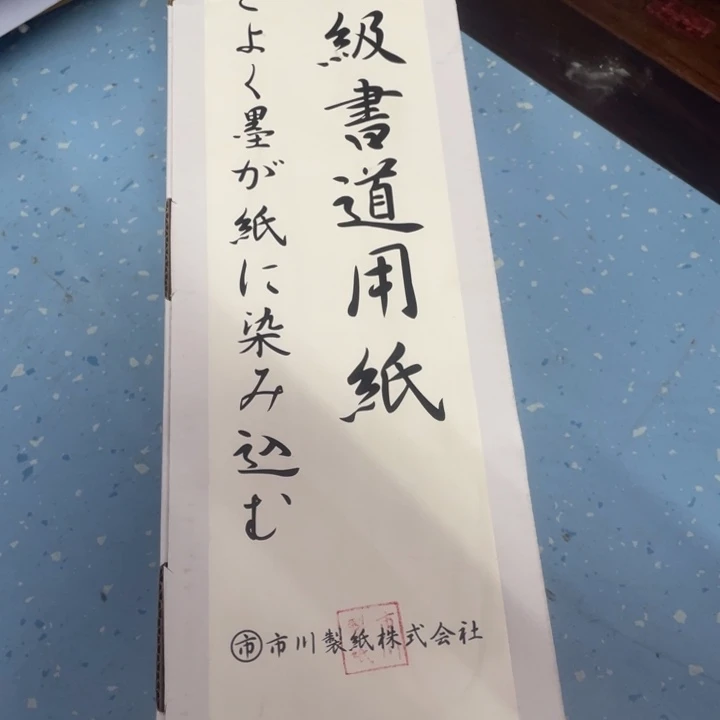 級書道用紙
よく墨が紙に染み込む
㊞市川製紙株式会社